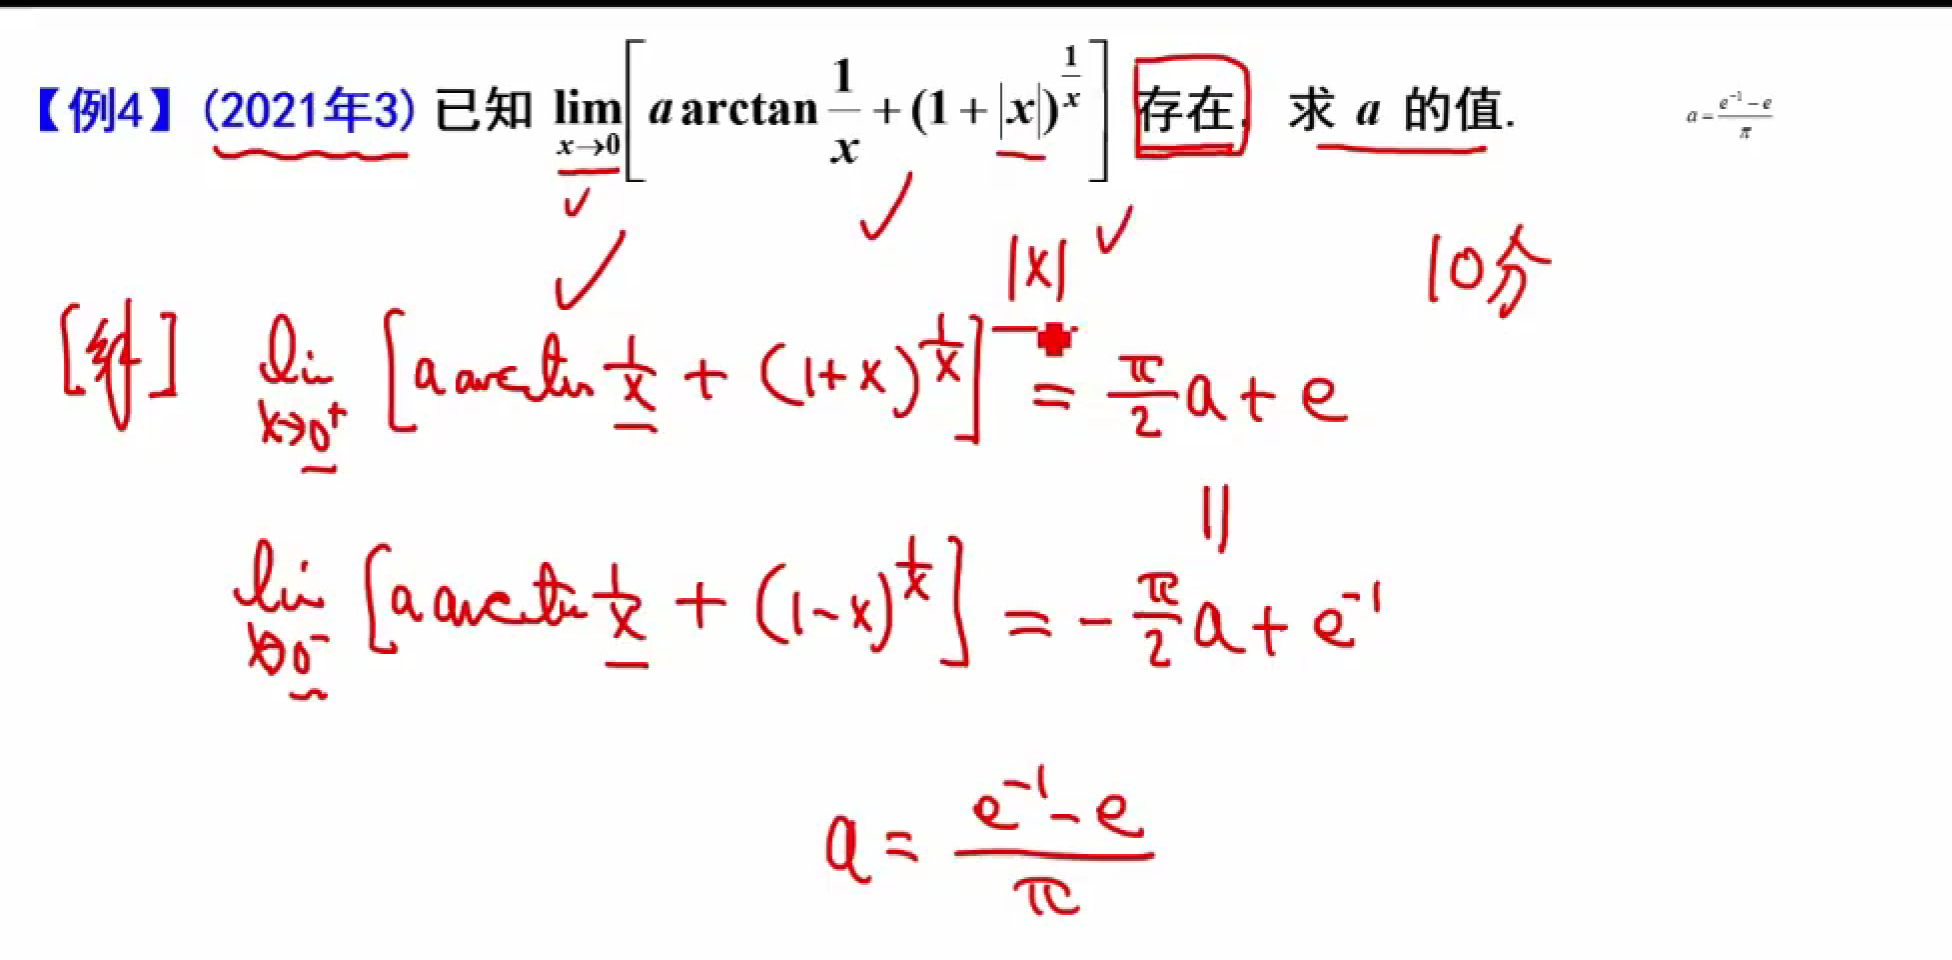 【例4】(2021年3) 已知 lim x→0 [a arctan 1/x + (1+|x|)^(1/x)] 存在, 求 a 的值.
a = (e^-1 - e)/π
|x|
10分
[解] lim x→0+ [a arctan 1/x + (1+x)^(1/x)] = π/2 a + e
||
lim x→0- [a arctan 1/x + (1-x)^(1/x)] = -π/2 a + e^-1
a = (e^-1 - e)/π